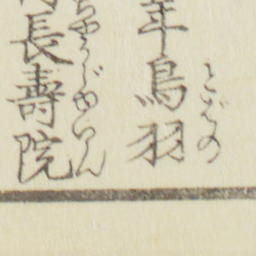 年鳥羽
とばの
長壽院
ちやうじゆいん